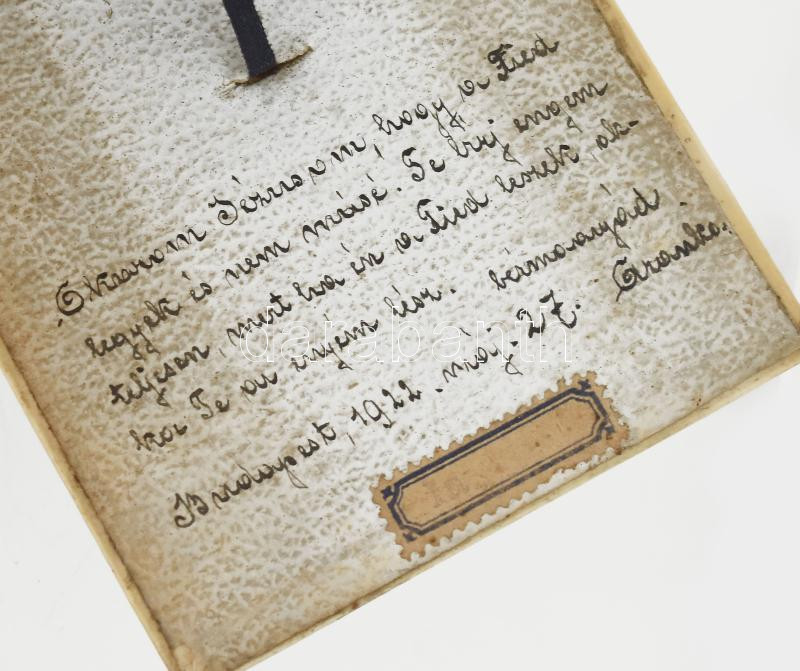 Akarom Jézusom, hogy a Tied
legyek és nem másé. Te bírj engem
teljesen, mert ha én a Tied leszek, ak-
kor Te az enyém lész. bérmaanyád
Budapest, 1922. máj. 27. Aranka.
databanth